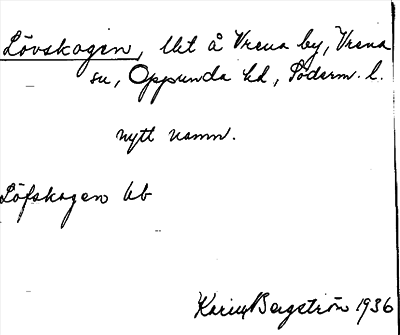 Lövskogen, lht å Vrena by, Vrena
sn, Oppunda hd, Söderm. l.
nytt namn.
Löfskogen kb
Karin Bergström 1936